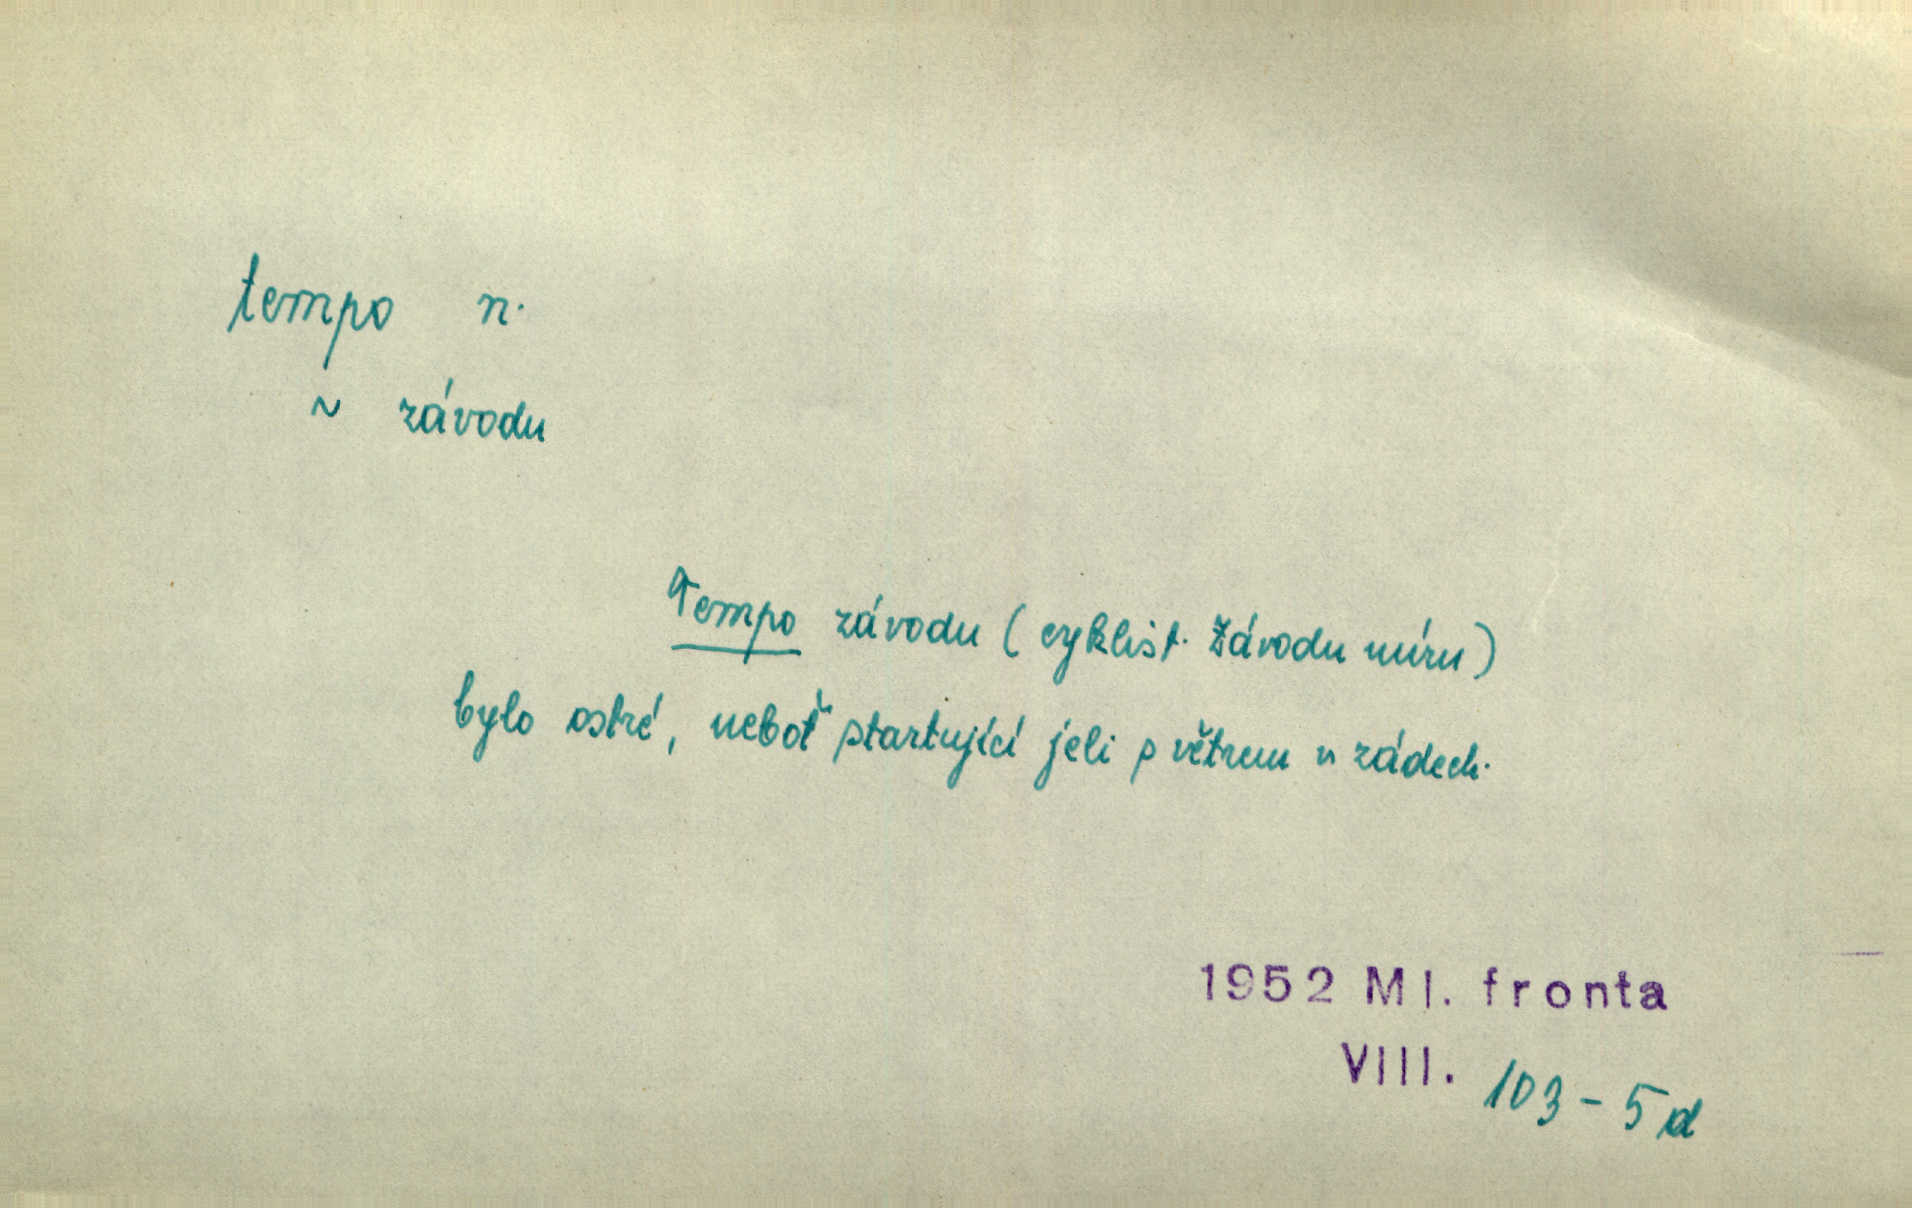 tempo n.
~ závodu
Tempo závodu (cyklist. Závodu míru)
bylo ostré, neboť startující jeli s větrem v zádech.
1952 Ml. fronta
VIII. 103-5d